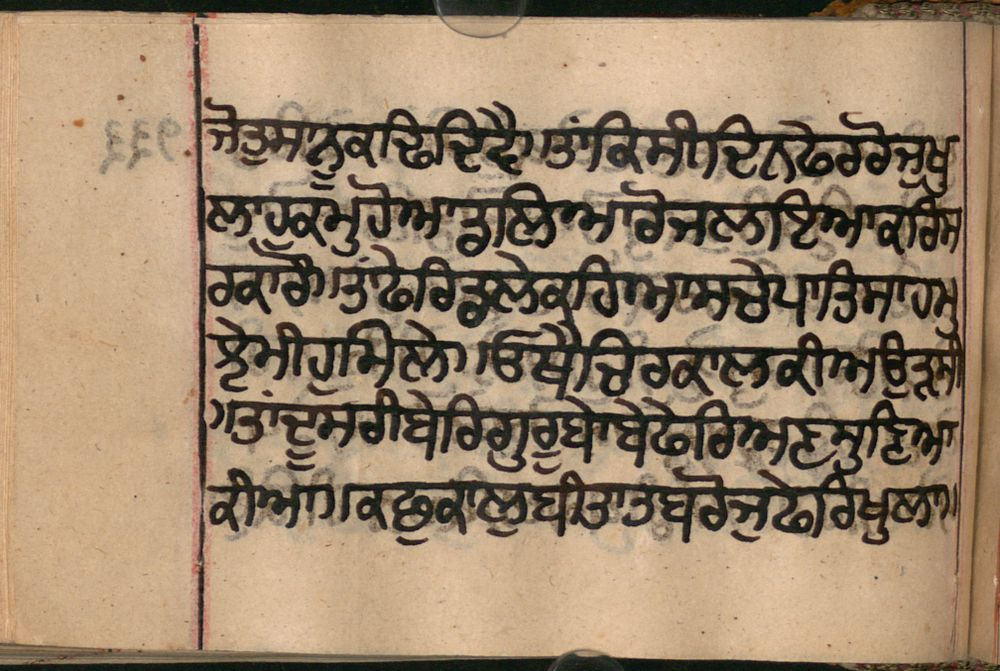 ਜੋਤੁਸਾਨੂਕਢਿਦਿਵੈ॥ਤਾਂਕਿਸੀਦਿਨਫੇਰਰੋਜੁਖੁ
ਲਾਹੁਕਮੁਹੋਆਭੁਲਿਆਰੋਜਲਾਇਆਕਰਿਸ
ਰਕਾਰੋ॥ਤਾਂਫੇਰਿਭੁਲੇਕਹਿਆਸਚੇਪਾਤਿਸਾਹਮੁ
ਝੈਮੀਹੁਮਿਲੇ॥ਓਥੈਚਿਰਕਾਲੁਕੀਅਉਤੁਸੀ
॥ਤਾਂਦੂਸਰੀਬੇਰਿਗੁਰੂਬਾਬੇਫੇਰਿਅਣਸੁਣਿਆ
ਕੀਆ॥ਕਛੁਕਾਲੁਬੀਤਾਤਬਰੋਜੁਫੇਰਿਖੁਲਾ॥